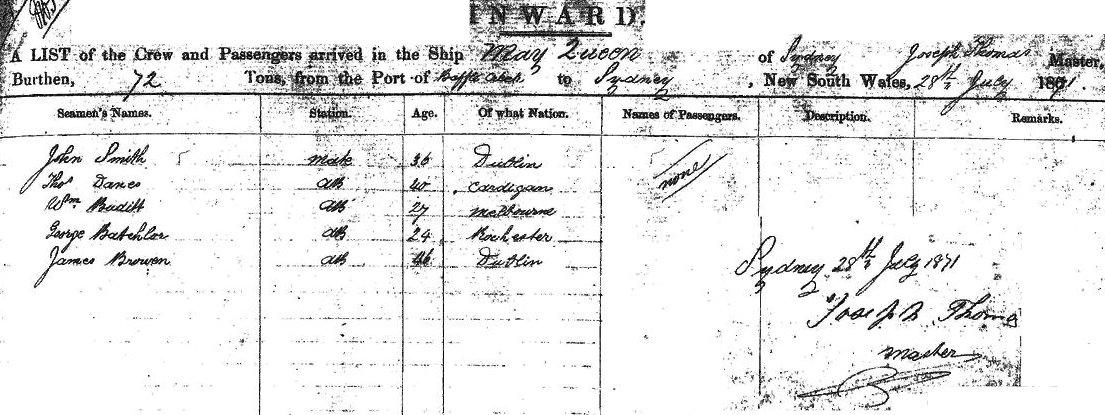 INWARD.
A LIST of the Crew and Passengers arrived in the Ship May Queen of Sydney Joseph Thomas Master,
Burthen, 72 Tons, from the Port of to Sydney, New South Wales, 28th July 1871.
Seamen's Names. Station. Age. Of what Nation. Names of Passengers. Description. Remarks.
John Smith mate 36 Dublin none
Thos AB Cardigan
Wm AB 27 Melbourne
George Batchlor AB 24 Rochester
James Browen AB Dublin
Sydney 28th July 1871
Joseph Thomas
master